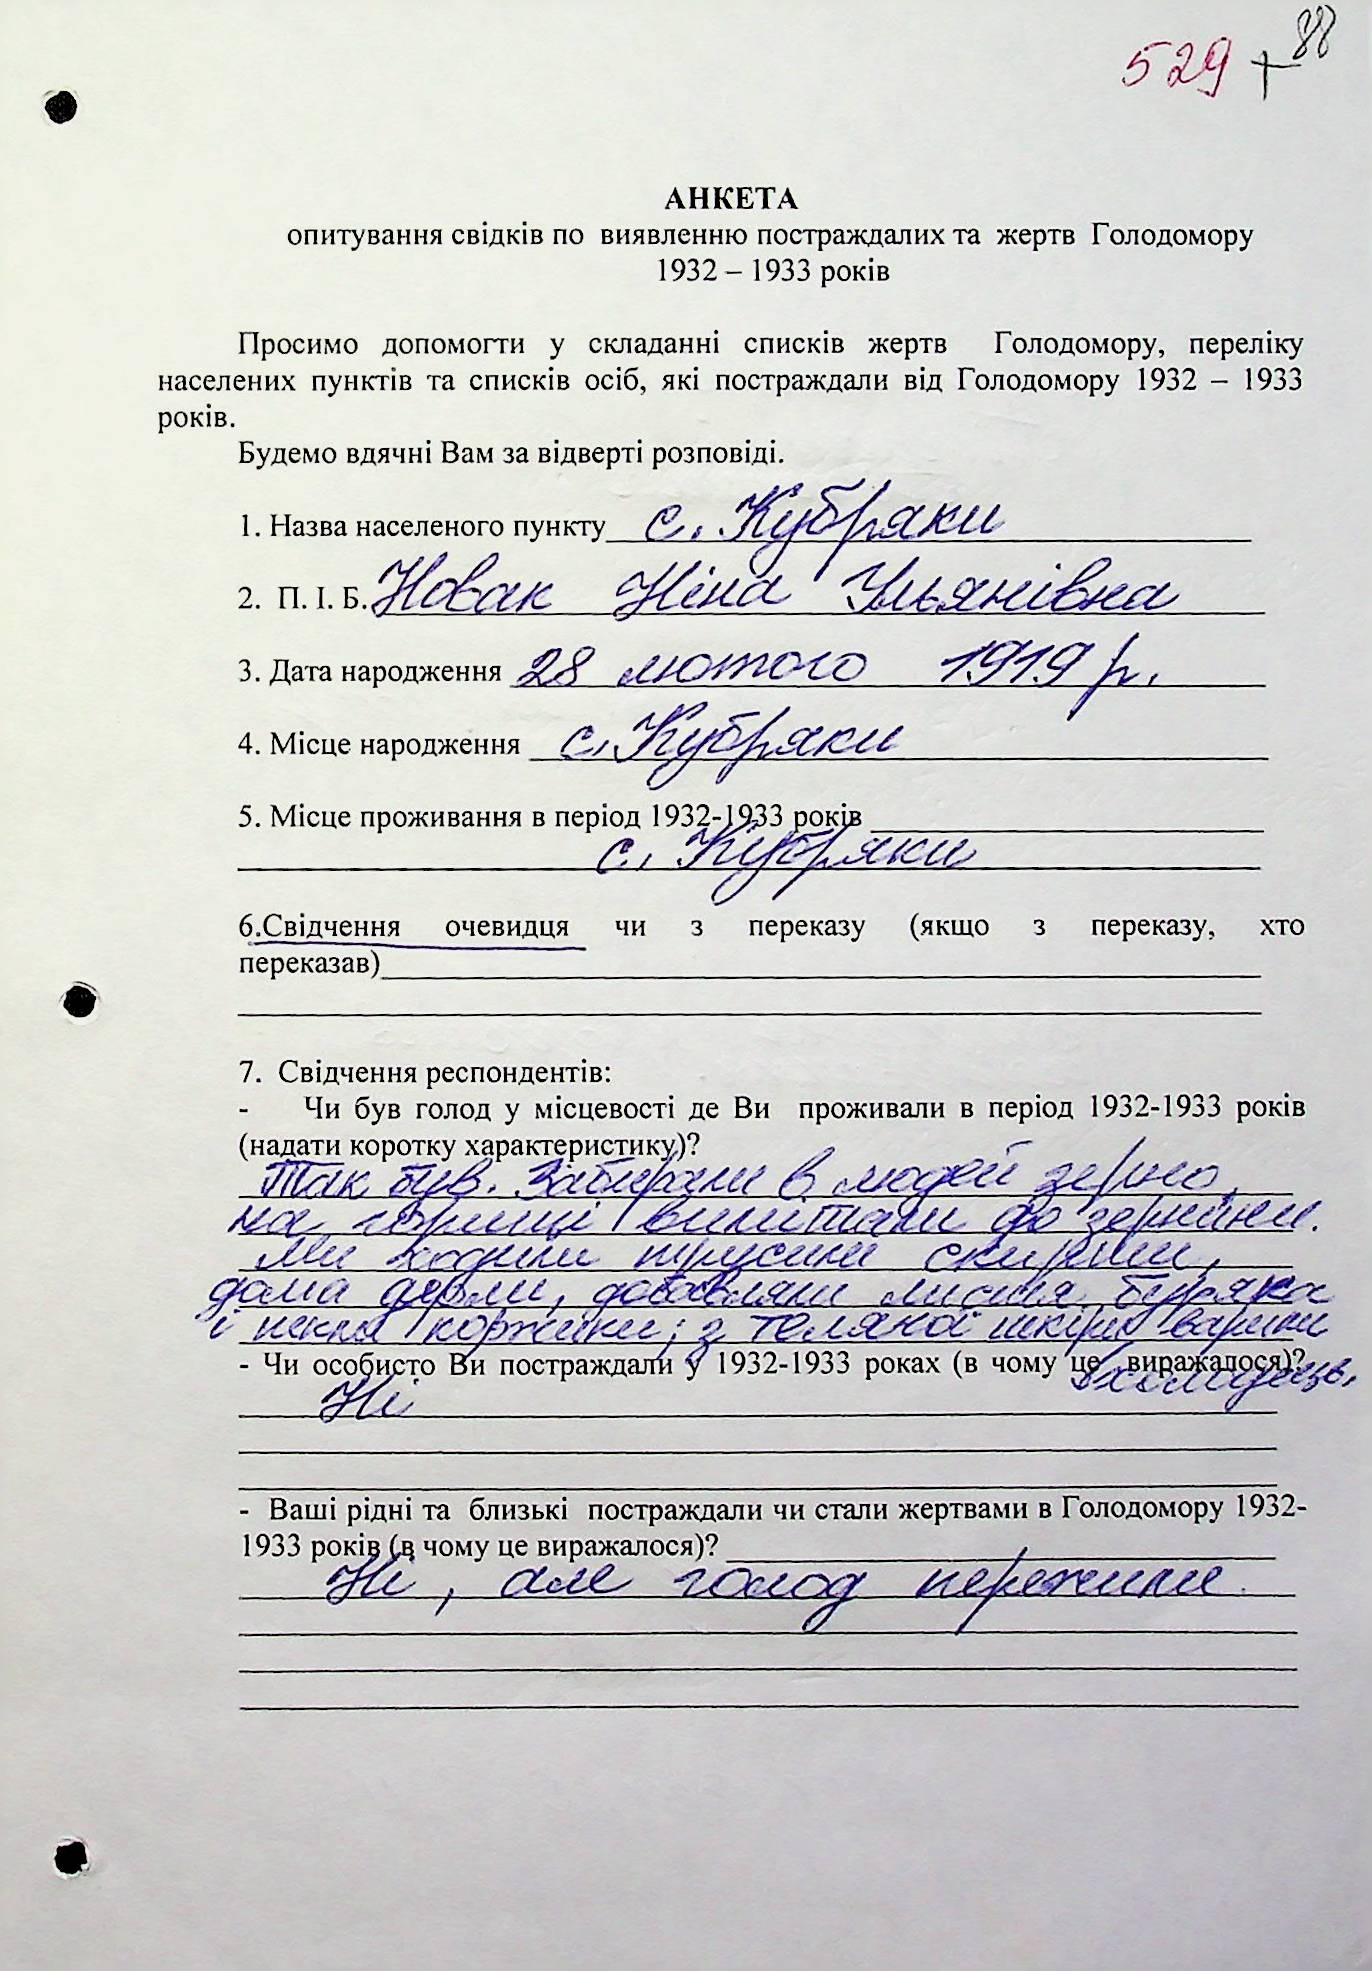 529 88
АНКЕТА
опитування свідків по виявленню постраждалих та жертв Голодомору
1932 – 1933 років
Просимо допомогти у складанні списків жертв Голодомору, переліку
населених пунктів та списків осіб, які постраждали від Голодомору 1932 – 1933
років.
Будемо вдячні Вам за відверті розповіді.
1. Назва населеного пункту с. Кубряки
2. П. І. Б. Новак Ніна Ульянівна
3. Дата народження 28 лютого 1919 р.
4. Місце народження с. Кубряки
5. Місце проживання в період 1932-1933 років
с. Кубряки
6.Свідчення очевидця чи з переказу (якщо з переказу, хто
переказав)
7. Свідчення респондентів:
- Чи був голод у місцевості де Ви проживали в період 1932-1933 років
(надати коротку характеристику)?
Так був. Забирали в людей зерно,
на горищі вимітали до зернини.
Ми ходили скирти,
дома дерли, добавляли листя буряка
і пекли коржики; з телячої шкіри варили
- Чи особисто Ви постраждали у 1932-1933 роках (в чому це виражалося)?
холодець.
Ні
- Ваші рідні та близькі постраждали чи стали жертвами в Голодомору 1932-
1933 років (в чому це виражалося)?
Ні, але голод пережили.